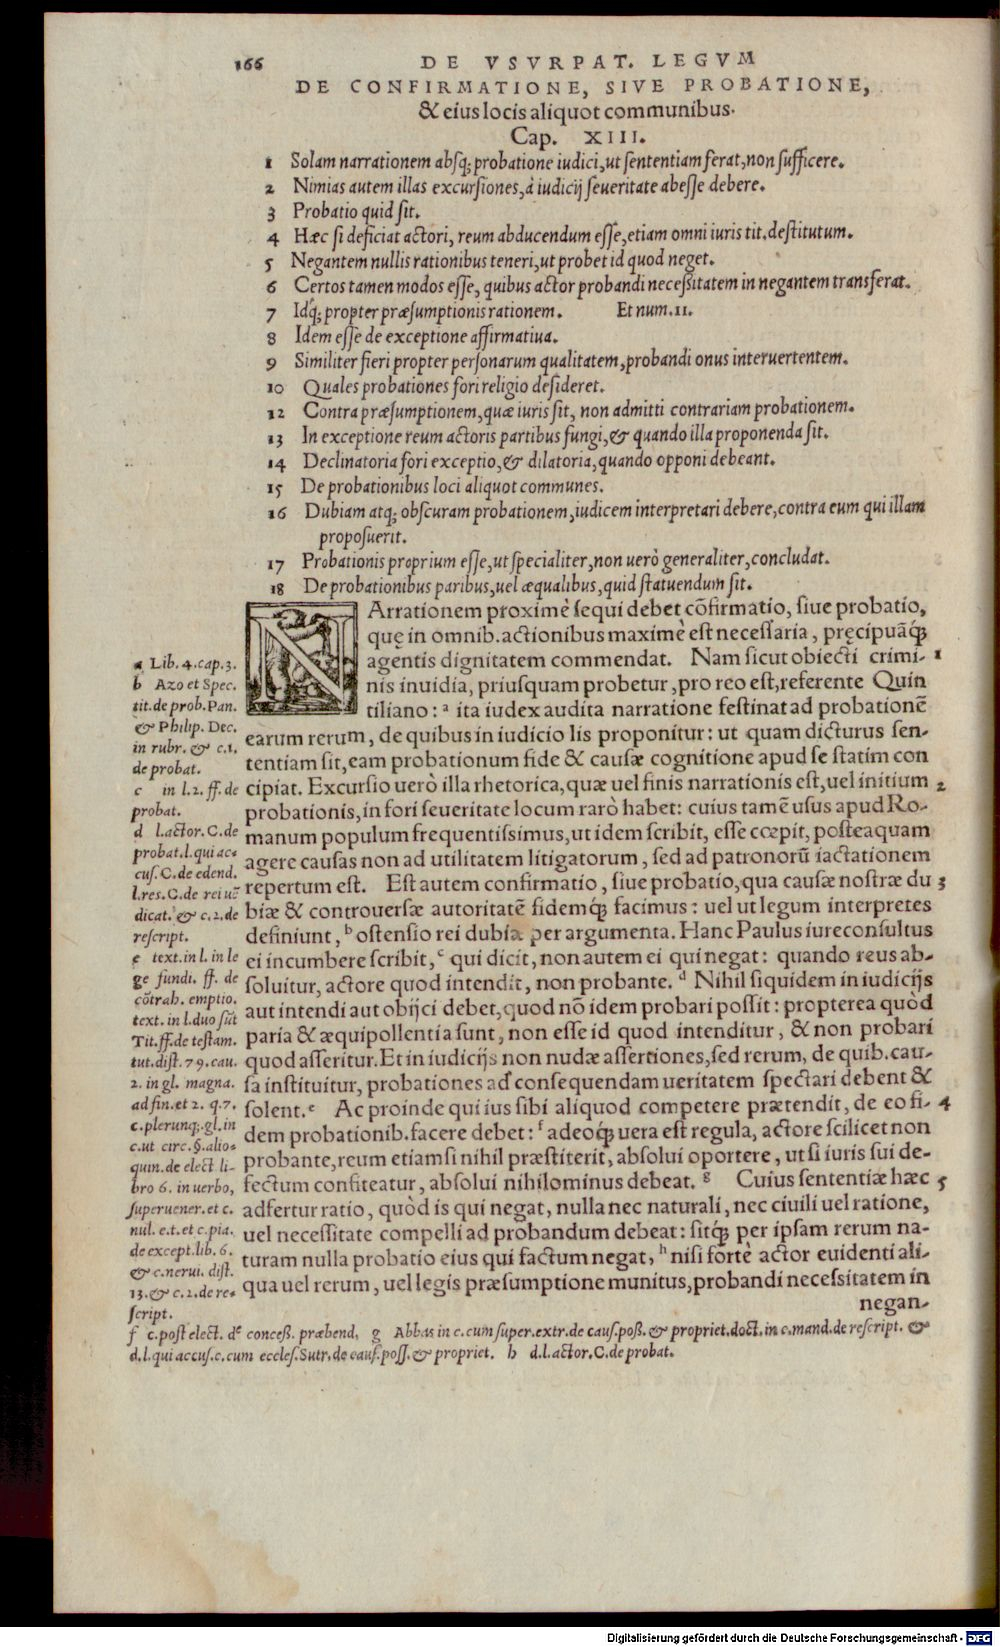 166 DE VSVRPAT. LEGVM
DE CONFIRMATIONE, SIVE PROBATIONE,
& eius locis aliquot communibus.
Cap. XIII.
1 Solam narrationem absq; probatione iudici, ut sententiam ferat, non sufficere.
2 Nimias autem illas excursiones, à iudicij seueritate abesse debere.
3 Probatio quid sit.
4 Hæc si deficiat actori, reum abducendum esse, etiam omni iuris tit. destitutum.
5 Negantem nullis rationibus teneri, ut probet id quod neget.
6 Certos tamen modos esse, quibus actor probandi necessitatem in negantem transferat.
7 Idq́; propter præsumptionis rationem. Et num. 11.
8 Idem esse de exceptione affirmatiua.
9 Similiter fieri propter personarum qualitatem, probandi onus interuertentem.
10 Quales probationes fori religio desideret.
12 Contra præsumptionem, quæ iuris sit, non admitti contrariam probationem.
13 In exceptione reum actoris partibus fungi, & quando illa proponenda sit.
14 Declinatoria fori exceptio, & dilatoria, quando opponi debeant.
15 De probationibus loci aliquot communes.
16 Dubiam atq; obscuram probationem, iudicem interpretari debere, contra eum qui illam
proposuerit.
17 Probationis proprium esse, ut specialiter, non uerò generaliter, concludat.
18 De probationibus paribus, uel æqualibus, quid statuendum sit.
NArrationem proximè sequi debet cōfirmatio, siue probatio,
quę in omnib. actionibus maximè est necessaria, pręcipuāq́;
agentis dignitatem commendat. Nam sicut obiecti crimi- 1
nis inuidia, priusquam probetur, pro reo est, referente Quin
tiliano: a ita iudex audita narratione festinat ad probationē
earum rerum, de quibus in iudicio lis proponitur: ut quam dicturus sen-
tentiam sit, eam probationum fide & causæ cognitione apud se statim con
cipiat. Excursio uerò illa rhetorica, quæ uel finis narrationis est, uel initium 2
probationis, in fori seueritate locum rarò habet: cuius tamē usus apud Ro-
manum populum frequentissimus, ut idem scribit, esse cœpit, posteaquam
agere causas non ad utilitatem litigatorum, sed ad patronorū iactationem
repertum est. Est autem confirmatio, siue probatio, qua causæ nostræ du 3
biæ & controuersæ autoritatē fidemq́; facimus: uel ut legum interpretes
definiunt, b ostensio rei dubiæ per argumenta. Hanc Paulus iureconsultus
ei incumbere scribit, c qui dicit, non autem ei qui negat: quando reus ab-
soluitur, actore quod intendit, non probante. d Nihil siquidem in iudicijs
aut intendi aut obijci debet, quod nō idem probari possit: propterea quòd
paria & æquipollentia sunt, non esse id quod intenditur, & non probari
quod asseritur. Et in iudicijs non nudæ assertiones, sed rerum, de quib. cau-
sa instituitur, probationes ad consequendam ueritatem spectari debent &
solent. e Ac proinde qui ius sibi aliquod competere prætendit, de eo fi- 4
dem probationib. facere debet: f adeoq́; uera est regula, actore scilicet non
probante, reum etiamsi nihil præstiterit, absolui oportere, ut si iuris sui de-
fectum confiteatur, absolui nihilominus debeat. g Cuius sententiæ hæc 5
adfertur ratio, quòd is qui negat, nulla nec naturali, nec ciuili uel ratione,
uel necessitate compelli ad probandum debeat: sitq́; per ipsam rerum na-
turam nulla probatio eius qui factum negat, h nisi fortè actor euidenti ali-
qua uel rerum, uel legis præsumptione munitus, probandi necessitatem in
negan-
a Lib. 4. cap. 3.
b Azo et Spec.
tit. de prob. Pan.
& Philip. Dec.
in rubr. & c. 1.
de probat.
c in l. 2. ff. de
probat.
d l. actor. C. de
probat. l. qui ac-
cus. C. de edend.
l. res. C. de rei uē
dicat. & c. 2. de
rescript.
e text. in l. in le
ge fundi. ff. de
cōtrah. emptio.
text. in l. duo sūt
Tit. ff. de testam.
tut. dist. 79. cau.
2. in gl. magna.
ad fin. et 2. q. 7.
c. plerunq;. gl. in
c. ut circ. §. alio-
quin. de elect. li-
bro 6. in uerbo,
superuener. et c.
nul. e. t. et c. pia.
de except. lib. 6.
& c. nerui. dist.
13. & c. 2. de re-
script.
f c. post elect. de conceß. præbend. g Abbas in c. cum super. extr. de caus. poß. & propriet. doct. in c. mand. de rescript. &
d. l. qui accus. c. cum eccles. Sutr. de caus. poss. & propriet. h d. l. actor. C. de probat.
Digitalisierung gefördert durch die Deutsche Forschungsgemeinschaft - DFG